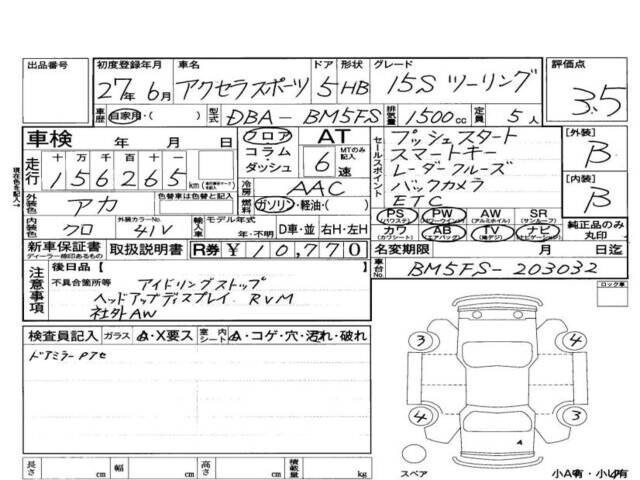 出品番号 初度登録年月 車名 ドア 形状 グレード 評価点
27年 6月 アクセラスポーツ 5 HB 15S ツーリング 3.5
車歴 自家用・( ) 型式 DBA-BM5FS 排気量 1500cc 定員 5人
車検 年 月 日 フロア コラム・ダッシュ AT MTのみ記入 6速
セールスポイント プッシュスタート
スマートキー
レーダークルーズ
バックカメラ
ETC
[外装] B
[内装] B
現在色を記入→
走行 十 万 千 百 十 一
156265 km
冷房 AAC
外装色 アカ 色替車は色替と記入 燃料 ガソリン・軽油・( )
PS (パワステ) PW (パワーウインド) AW (アルミホイル) SR (サンルーフ)
カワ (カワシート) AB (エアバッグ) TV (地デジ) ナビ (ナビゲーション)
純正品のみ丸印
内装色 クロ 外装カラーNo. 41V 輸入車 モデル年式 年・不明 D車・並 右H・左H
新車保証書 ディーラー捺印あるもの 取扱説明書 R券 ¥10,770
名変期限 月 日迄
車台No. BM5FS-203032
ロック車
注意事項 後日品 [ ]
不具合箇所等 アイドリングストップ
ヘッドアップディスプレイ. RVM
社外AW
検査員記入 ガラス A・X要ス 室内シート A・コゲ・穴・汚れ・破れ
ドアミラーPアセ
3 4
4 3
A
スペア
小A有・小U有
長さ cm 幅 cm 高さ cm 積載量 kg